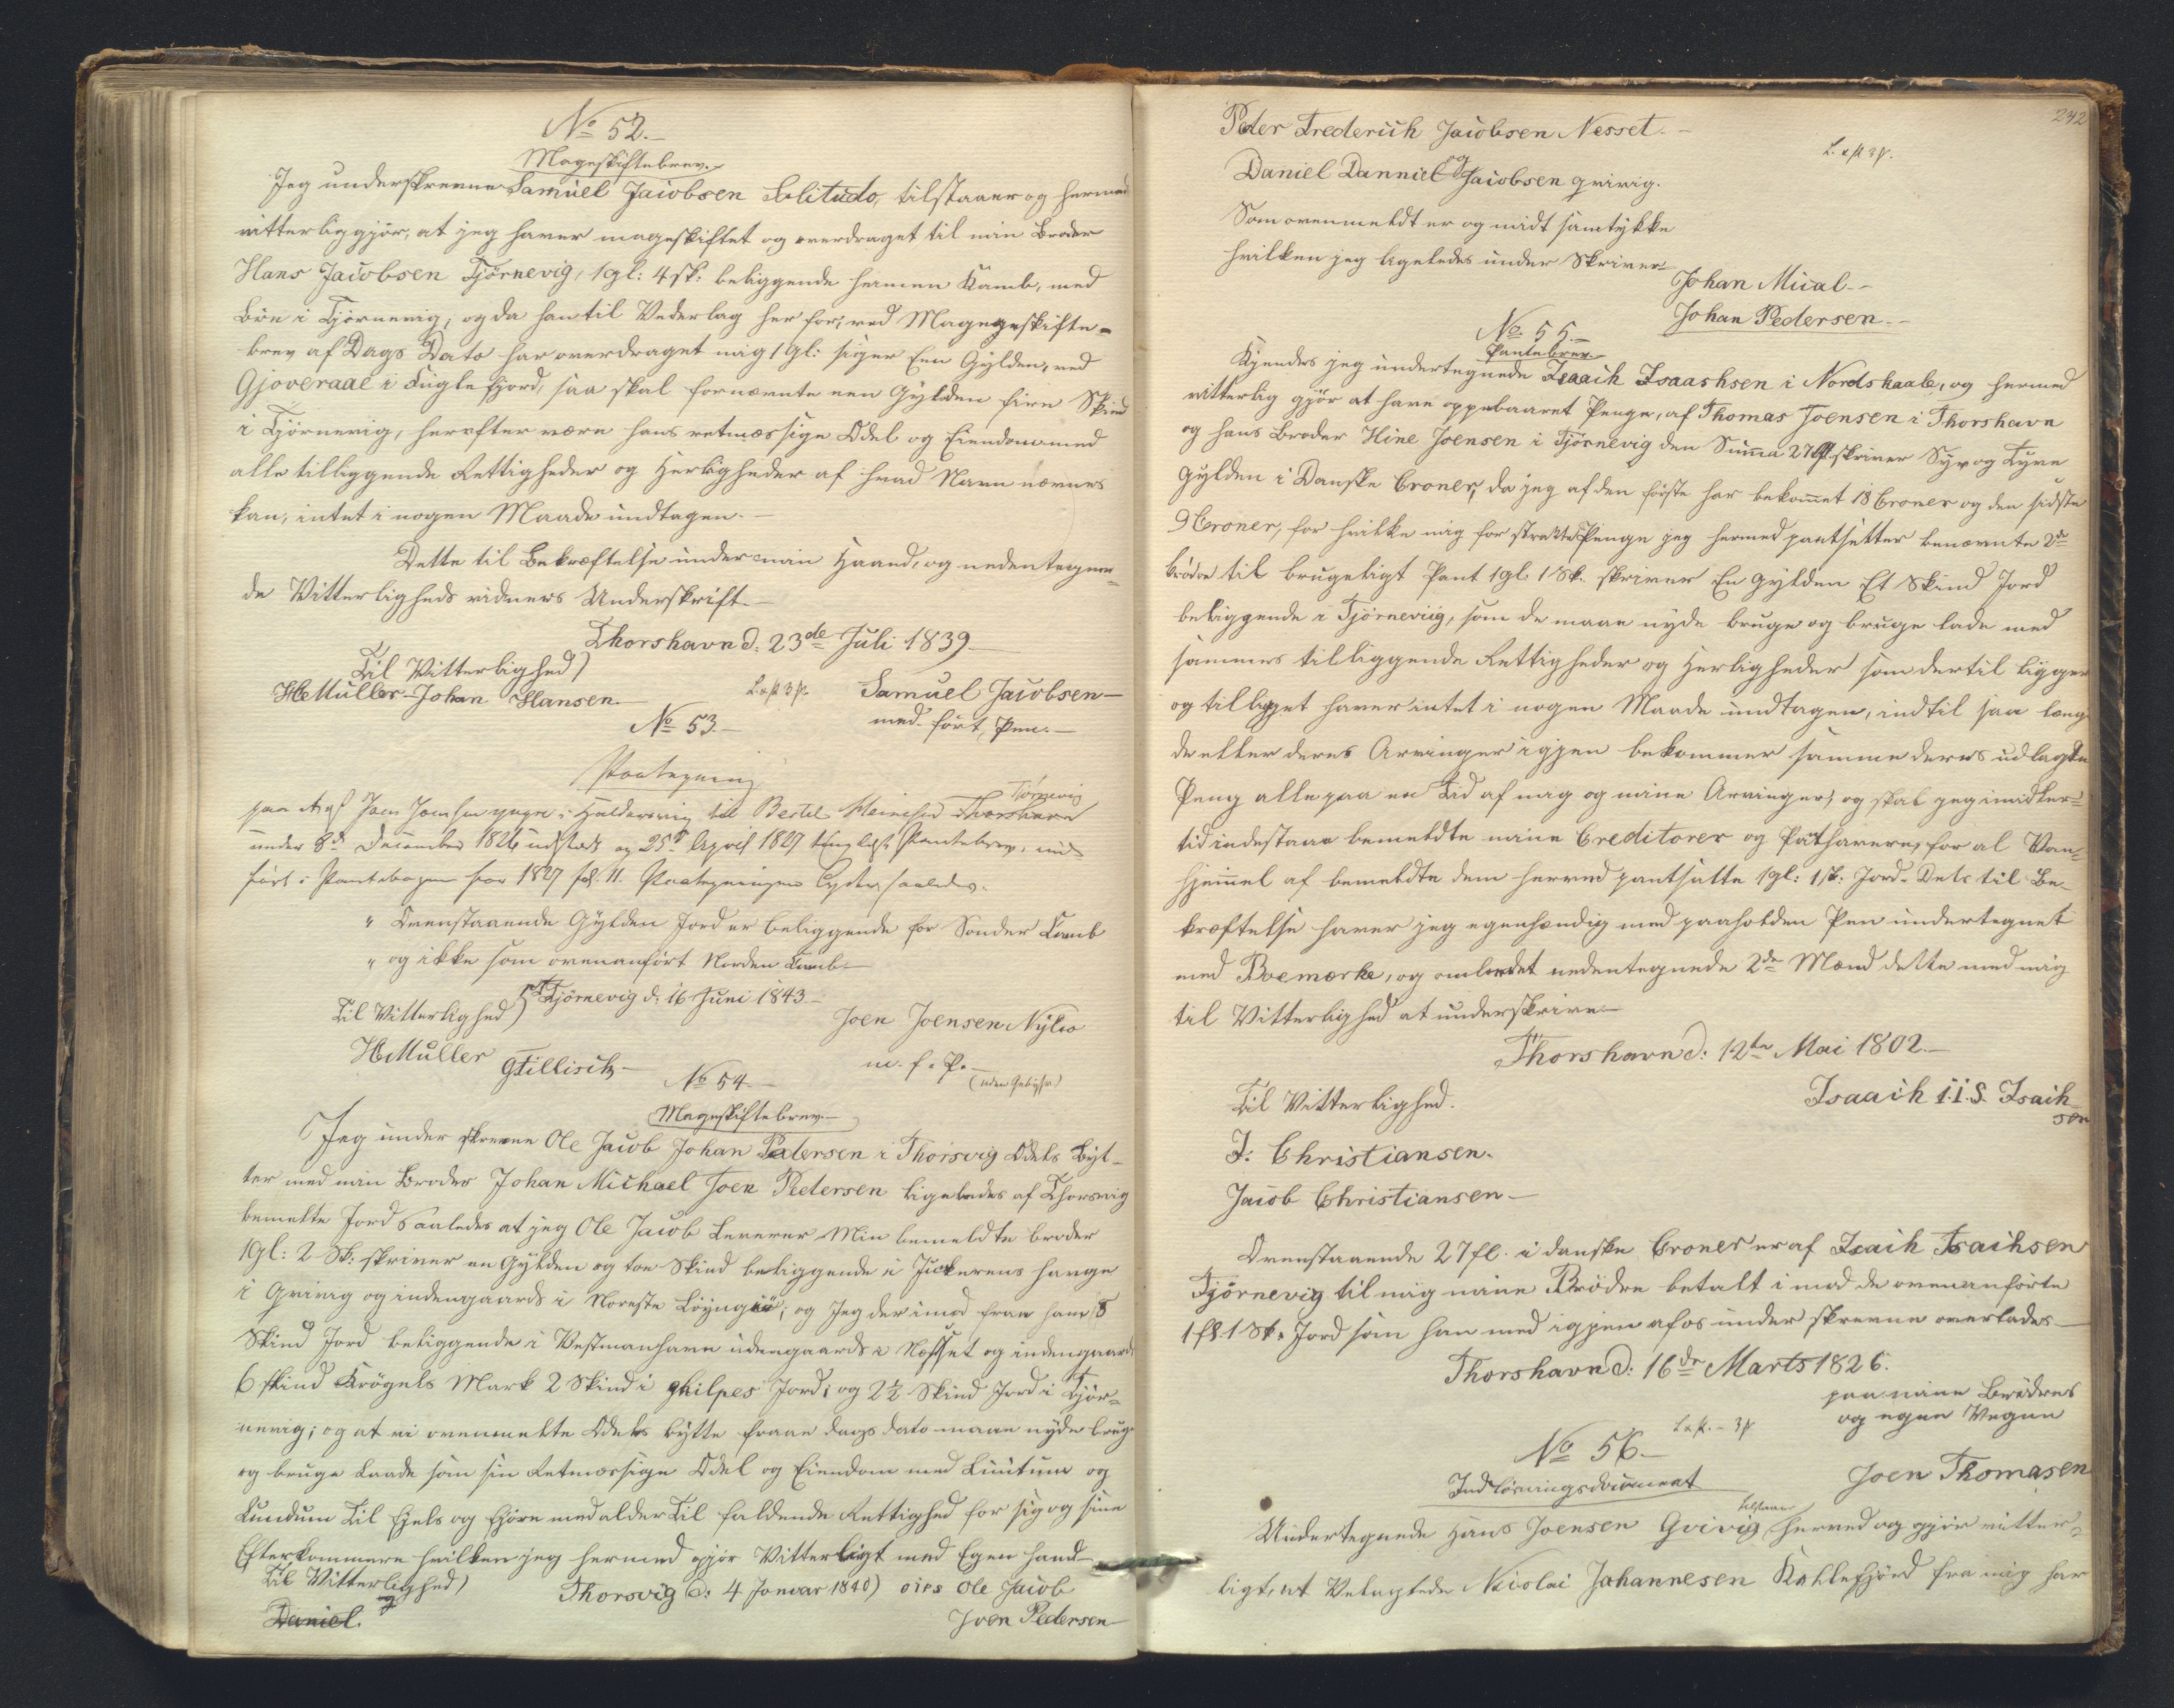 No 52.
Mageskiftebrev.
Jeg underskrevne Samuel Jacobsen Solitudo, tilstaaer og hermed
vitterliggjör, at jeg haver mageskiftet og overdraget til min Broder
Hans Jacobsen Tjörnevig, 1 gl: 4 sk: beliggende heimen Kamb, med
Böe i Tjörnevig, og da han til Vederlag her for, ved Magegeskifte-
brev af Dags Dato har overdraget mig 1 Gl: siger Een Gylden, ved
Gjoveraae i Fuglefjord, saa skal fornævnte een Gylden fire Skind
i Tjörnevig, herefter være hans retmæssige Odel og Eiendom med
alle tilliggende Rettigheder og Herligheder af hvad Navn nævnes
kan, intet i nogen Maade undtagen.
Dette til Bekræftelse under min Haand, og nedentegne-
de Vitterligheds vidners Underskrift.
Thorshavn d: 23de Juli 1839
Til Vitterlighed)
HMüller Johan Hansen.
Samuel Jacobsen
med fört Pen.
No 53.
Paategning
paa et af Joen Joensen yngre i Haldersvig til Bertel Heinesen Thorshavn Tjørnevig
under 8de December 1826 udstædt og 25de April 1827 tinglæst Pantebrev, ind-
fört i Pantebogen for 1827 fol. 11. Paategningen lyder saaledes.
" Ovenstaaende Gylden Jord er beliggende for Sönder Kamb
" og ikke som ovenanfört Norden Kamb.
Tjörnevig d: 16 Juni 1843
Til Vitterlighed)
Joen Joensen Nÿbo
m. f. P.
HMüller
(uden Gebyhr)
No 54.
Mageskiftebrev
Jeg under skrevne Ole Jacob Johan Pedersen i Thorsvig Odels Byt-
ter med min Broder Johan Michael Joen Pedersen ligeledes af Thorsvig
bemelte Jord Saaledes at jeg Ole Jacob Leverer Min bemeldte broder
1 Gl: 2 Sk: skriver en Gylden og toe Skind beliggende i Juckerens hauge
i Qvivig og indengaards i Noreste ; og Jeg der imod fraae ham 8
Skind Jord beliggende i Vestmanhavn udengaards i Næsset og indengaards
6 skind Krögels Mark 2 Skind i philpes Jord; og 2½ Skind Jord i Tjör-
nevig; og at vi ovenmelte Odels bytte fraae dags dato maae nyde bruge
og bruge Laade som sin Retmæssige Odel og Eiendom med Luutum og
Lundum Til Ejels og Ejöre med alder Til faldende Rettighed for sig og sine
Efterkommere hvilken jeg hermed gjör Vitterligt med Egen hand
Til Vitterlighed)
Thorsvig d: 4 Januar 1840) Ole Jacob
Daniel.
Joen Pedersen
242
Peder Frederich Jacobsen Nesset.
Daniel Danniel Jacobsen qvivig.
Som ovenmeldt er og midt samtykke
hvilken jeg ligeledes under Skriver
Johan Mical
Johan Pedersen
No 55.
Pantebrev.
Kjendes jeg undertegnede Isaach Isaachsen i Nordskaale, og hermed
vitterlig gjör at have oppebaaret Penge, af Thomas Joensen i Thorshavn
og hans Broder Hine Joensen i Tjörnevig den Summa 27 Gl skriver Syv og Tyve
Gylden i Danske Croner, da jeg af den förste har bekomet 18 Croner og den sidste
9 Croner, for hvilke mig for strakte Penge jeg hermed pantsetter benævnte 2de
brödre til brugeligt Pant 1 gl 1 Sk. skriver En Gylden Et Skind Jord
beliggende i Tjörneviig, som de maae nyde bruge og bruge lade med
sammes tilliggende Rettigheder og Herligheder som dertil ligger
og tilligget haver intet i nogen Maade undtagen, indtil saa længe
de eller deres Arvinger igjen bekommer samme deres udlagte
Peng alle paa en Tid af mig og mine Arvinger, og skal jeg imidler-
tid indestaae bemeldte mine Creditorer og Panthavere, for al Van-
hjemmel af bemeldte dem herved pantsatte 1 gl: 1 sk: Jord. Dets til Be-
kræftelse haver jeg egenhændig med paaholden Pen undertegnet
med Boemærke, og ombedet nedentegnede 2de Mænd dette med mig
til Vitterlighed at underskrive
Thorshavn d: 12te Mai 1802.
Til Vitterlighed.
Isaach I.I.S. Isach
sen
J. Christiansen.
Jacob Christiansen
Ovenstaaende 27 fl. i danske Croner er af Isach Isachsen
Tjörnevig til mig mine Brödre betalt imod de ovenanförte
1 fl. 1 Sk. Jord som han med igjen af os under skrevne overlades
Thorshavn d: 16de Marts 1826.
paa mine Brödres
og egne Vegne
Joen Thomasen
No 56.
Indlösningsdocument
Undertegnede Hans Joensen Qvivig tilstaaer herved og gjör vitter-
ligt, at Velagtede Nicolai Johannesen Kollefjord fra mig har